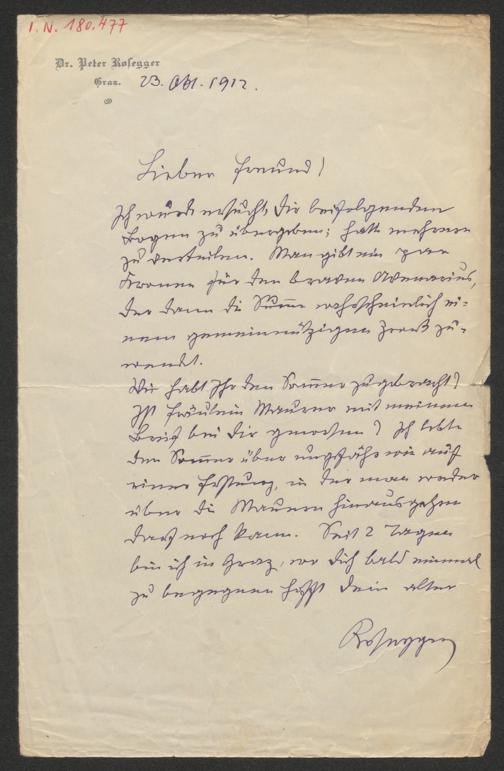 I. N. 180.477
Dr. Peter Rosegger
Graz. 23. Okt. 1912.
Lieber Freund!
Ich wurde ersucht, Dir beifolgenden
Bogen zu übergeben; hatte mehrere
zu verteilen. Man gibt ein paar
Kronen für den braven Avenarius,
der dann die Summe wahrscheinlich ei-
nem gemeinnützigen Zweck zu-
wendet.
Wie habt Ihr den Sommer zugebracht?
Ist Fräulein Maurer mit meinem
Brief bei Dir gewesen? Ich lebte
den Sommer über ungefähr wie auf
einer Festung, in der man weder
über die Mauern hinausgehen
darf noch kann. Seit 2 Tagen
bin ich in Graz, wo Dich bald einmal
zu begegnen hofft Dein alter
Rosegger